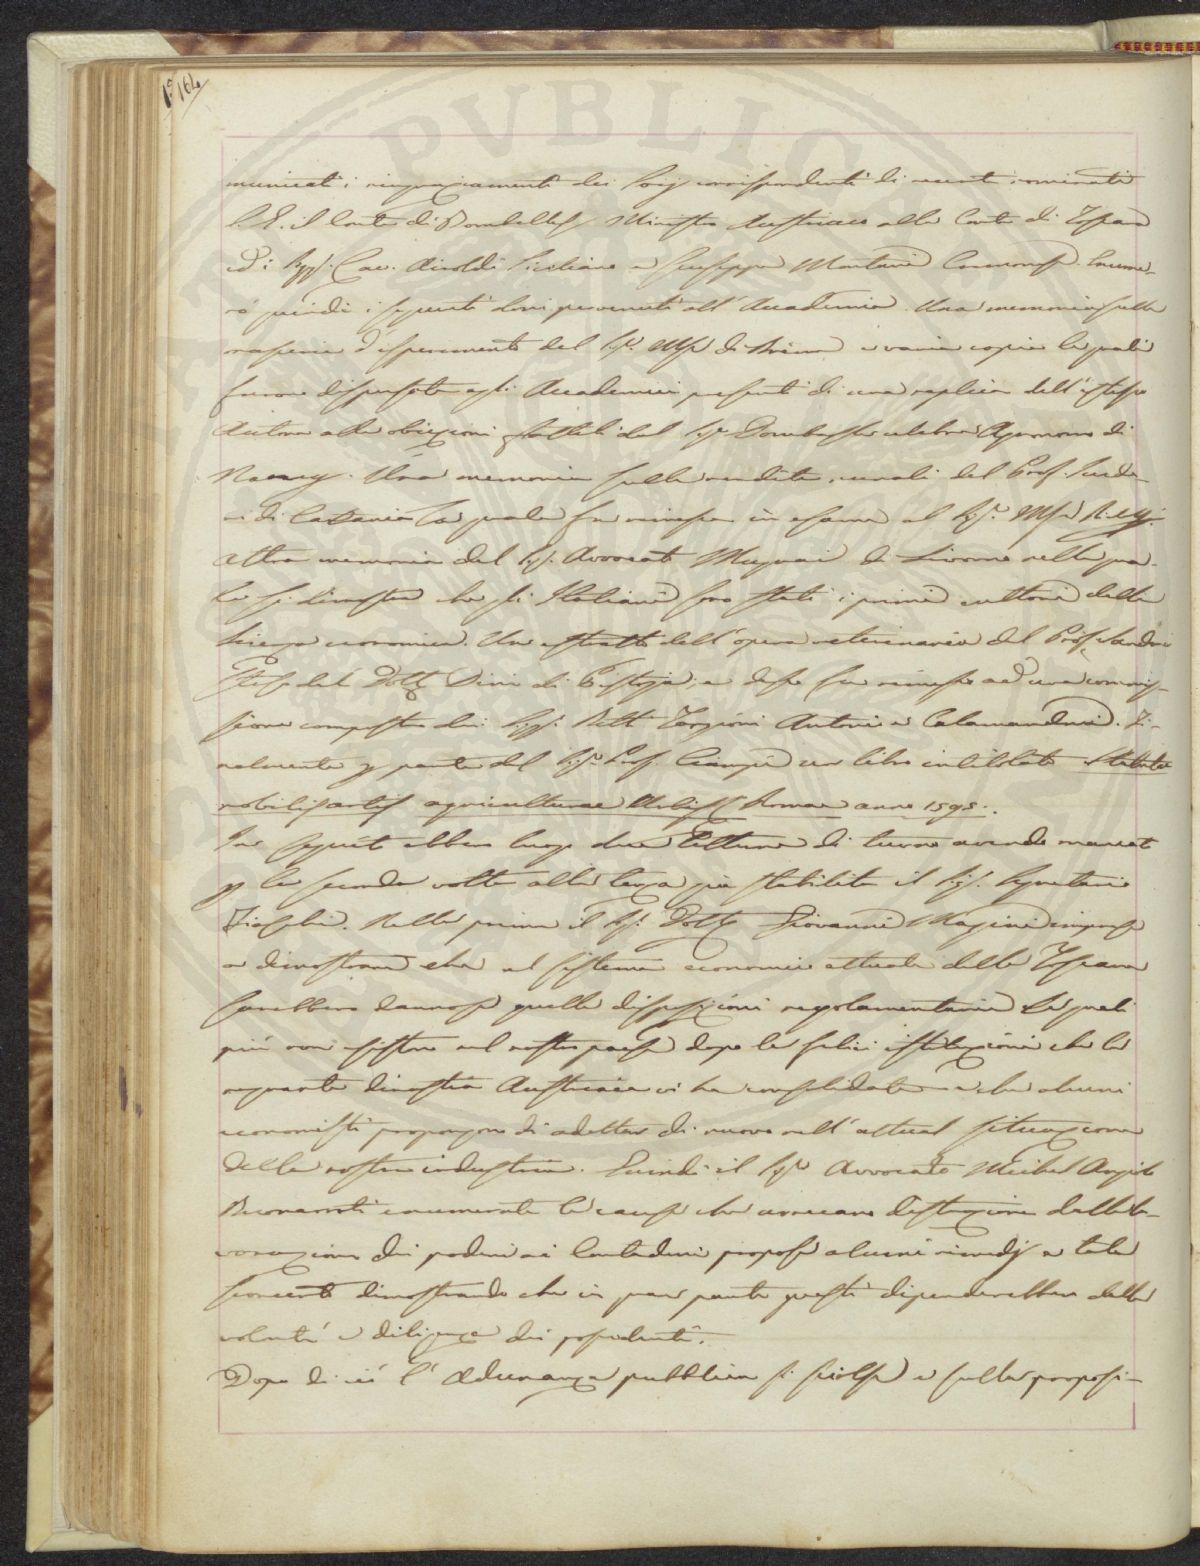 164
municati i ringraziamenti dei Socj corrispondenti di recente nominati
S. E. il Conte di Bombelles Ministro Austriaco alla Corte di Toscana
ed i Sigg.ri Cav. Airoldi Siciliano e Giuseppe Montani Cremonese. Enume-
rò quindi i seguenti doni pervenuti all' Accademia. Una memoria sulla
d'esperimenti del Sig.r Mse di e varie copie le quali
furono dispensate agli Accademici presenti di una replica dell' istesso
Autore alle obiezioni fatteli dal Sig.r Dombasle celebre Agronomo di
Nancy. Una memoria sulle rendite rurali del Prof. Scude-
ri di Catania la quale fu rimessa in esame al Sig.r Mse Ridolfi.
altra memoria del Sig. Avvocato Magnai di Livorno nella qua-
le si dimostra che gli Italiani sono stati i primi cultori della
Scienza economica. Un estratto dell' opera veterinaria del Prof.
del Dott. di Pistoja, e desso fu rimesso ad una commis-
sione composta dei Sigg.ri Dott. Targioni Antonio e Calamandrei. Fi-
nalmente p parte del Sig.r Prof. Ciampi un libro intitolato Statuta
nobilis artis agriculturae Urbis Romae anno 1595.
In seguito ebbero luogo due Letture di turno avendo mancato
p la seconda volta alla legge già stabilita il Sig.
Nella prima il Sig. Dott. Giovanni Magini imprese
a dimostrare che al sistema economico attuale della Toscana
sarebbero dannose quelle disposizioni regolamentarie le quali
più non esistono nel nostro paese dopo le felici istituzioni che la
regnante dinastia Austriaca ci ha consolidate e che alcuni
economisti propongono di adottar di nuovo nell' attual situazione
della nostra industria. Quindi il Sig.r Avvocato Michel Angiolo
Buonarroti enumerate le cause che arrecano distrazione dalla la-
vorazione dei poderi ai Contadini propose alcuni rimedj a tale
sconcerto dimostrando che in gran parte questi dipenderebbero dalla
volontà e diligenza dei possidenti.
Dopo di ciò l' Adunanza pubblica si sciolse e sulla proposi-